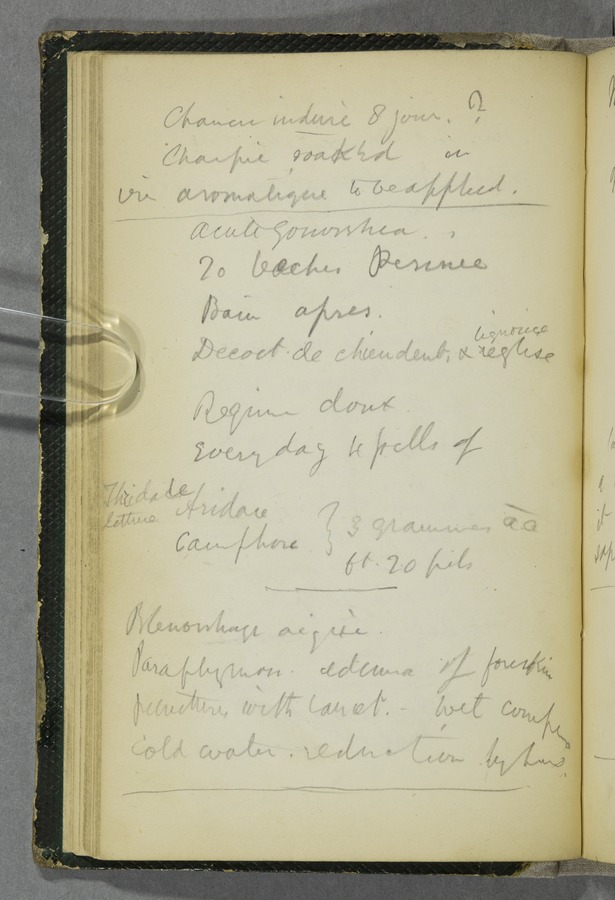 Chancre induré 8 jour. ?
Charpie soaked in
vin aromatique to be applied.
acute Gonorrhea.
20 leeches Perinee
Bain apres.
liquorice
Decoct. de chiendent & reglise
Regime doux
Every day 4 pills of
Thridace
lettuce
Aridace
Camphore } 3 grammes āā
ft. 20 pils
Blenorrhage aigüe.
Paraphymosis. edema of foreskin
punctures with lancet. - wet compress
cold water. reduction by